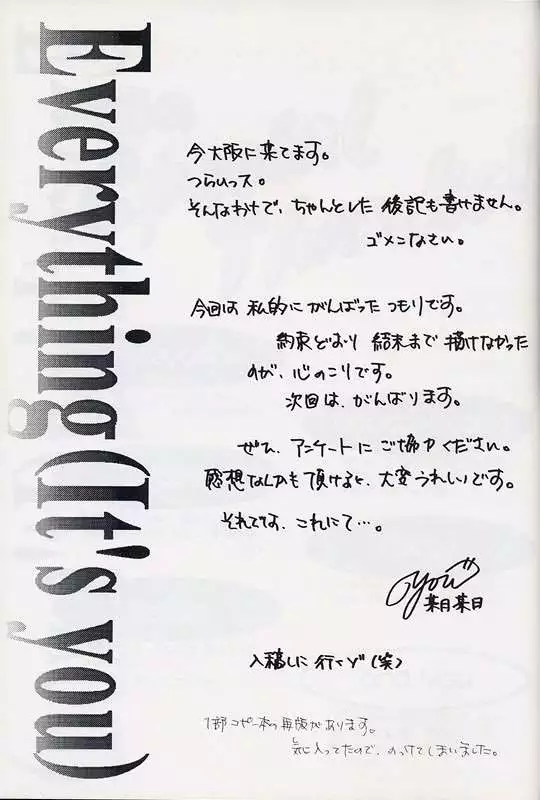 Everything (It's you)
今大阪に来てます。
つらいっス。
そんなわけで、ちゃんとした 後記も書けません。
ゴメンなさい。
今回は 私的にがんばった つもりです。
約束どおり 結末まで 描けなかった
のが、心のこりです。
次回は、がんばります。
ぜひ、アンケートに ご協力ください。
感想なんかも 頂けると、大変うれしいです。
それでは、これにて…。
you
某月某日
入稿しに 行くゾ(笑)
1部コピー本の再版があります。
気に入ってたので、のっけてしまいました。